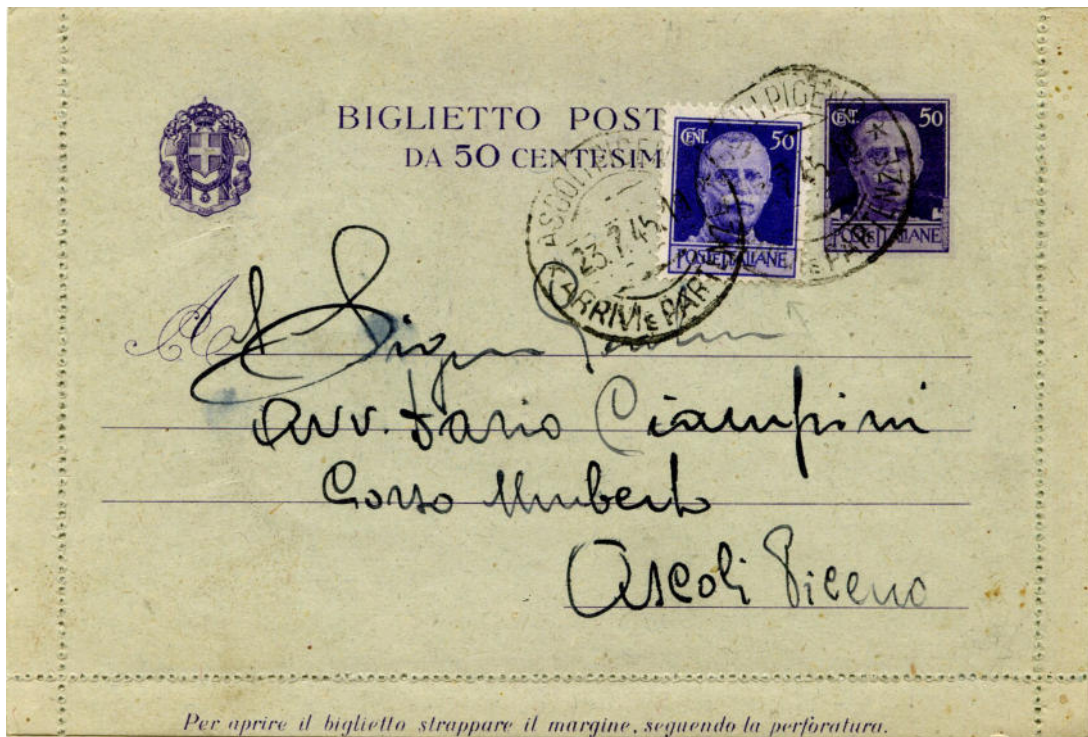 BIGLIETTO POST
DA 50 CENTESIM
CENT. 50
POSTE ITALIANE
CENT. 50
POSTE ITALIANE
ASCOLI PICENO
23.7.45.19
ARRIVI E PARTENZE
PICENO
ARRIVI E PARTENZE
A
Avv. Dario Ciampini
Corso Umberto
Ascoli Piceno
Per aprire il biglietto strappare il margine, seguendo la perforatura.